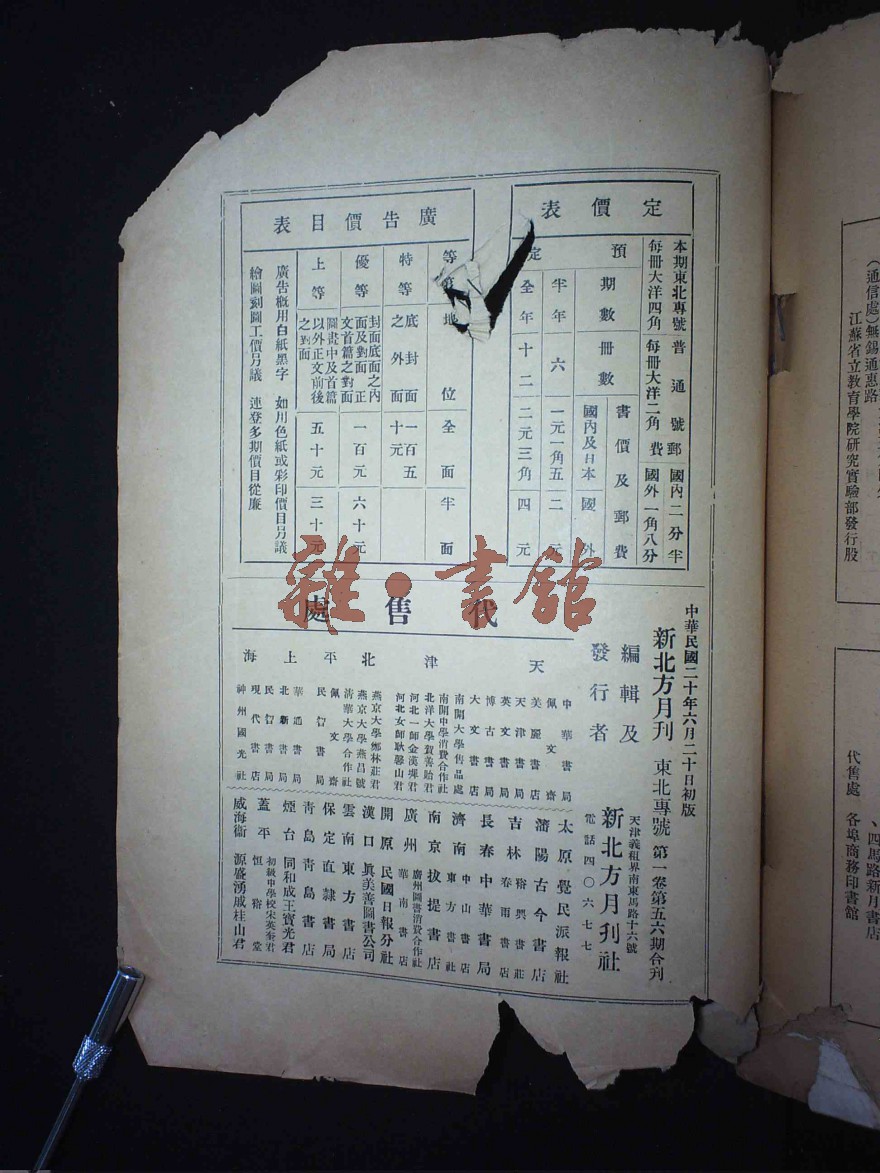 定價表
本期東北專號 每冊大洋四角
普通號 每冊大洋二角
郵費 國內二分半 國外一角八分
預定
期數 冊數 書價及郵費
國內及日本 國外
半年 六 一元一角五 二元
全年 十二 二元三角 四元
廣告價目表
地位 全面 半面
特等 底封面之外面 一百五十元
優等 封面底面之內面及對面正文首篇之對面 一百元 六十元
上等 圖畫中及首篇以外正文前後之對面 五十元 三十元
廣告概用白紙黑字 如用色紙或彩印價目另議
繪圖刻圖工價另議 連登多期價目從廉
中華民國二十年六月二十日初版
新北方月刊 東北專號 第一卷第五六期合刊
編輯及發行者
天津義租界南東馬路十六號
新北方月刊社
電話四〇六七七
代售處
天津
中華書局
佩文齋
美麗書店
天津書局
英文書局
博古書局
大文書店
南開大學售品處
南開中學消費合作社
北洋大學賀善貽君
河北一師金漢墀君
河北女師耿馨山君
北平
燕京大學鄭林莊君
燕京大學燕昌號
清華大學合作社
佩文齋
民智書局
上海
華通書局
北新書局
民智書局
現代書店
神州國光社
太原覺民派報社
瀋陽古今書店
吉林 裕興書莊 春雨書店
長春中華書局
濟南 中山書店 東方書社
南京拔提書店
廣州 廣州圖書消費合作社 華南書店
開原民國日報分社
漢口真美善圖書公司
雲南東方書店
保定直隸書局
青島青島書店
煙台同和成王寶光君
蓋平 初級中學校宋英奎君 恒裕堂
威海衞 源盛湧戚桂山君
雜·書館
(通信處)無錫通惠路
江蘇省立教育學院研究實驗部發行股
、四馬路新月書店
代售處 各埠商務印書館